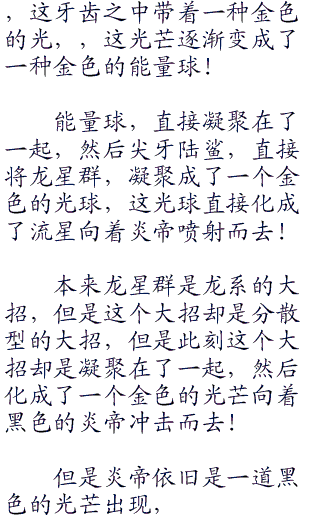 ，这牙齿之中带着一种金色
的光，，这光芒逐渐变成了
一种金色的能量球！
能量球，直接凝聚在了
一起，然后尖牙陆鲨，直接
将龙星群，凝聚成了一个金
色的光球，这光球直接化成
了流星向着炎帝喷射而去！
本来龙星群是龙系的大
招，但是这个大招却是分散
型的大招，但是此刻这个大
招却是凝聚在了一起，然后
化成了一个金色的光芒向着
黑色的炎帝冲击而去！
但是炎帝依旧是一道黑
色的光芒出现，